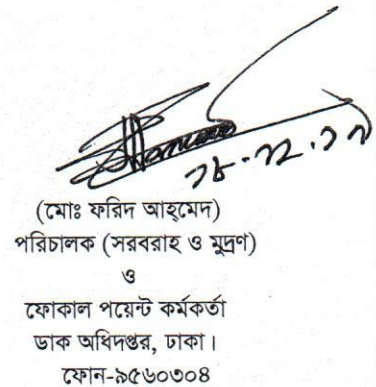 ২৮.১২.১৭
(মোঃ ফরিদ আহ্‌মেদ)
পরিচালক (সরবরাহ ও মুদ্রণ)
ও
ফোকাল পয়েন্ট কর্মকর্তা
ডাক অধিদপ্তর, ঢাকা।
ফোন-৯৫৬০৩০৪